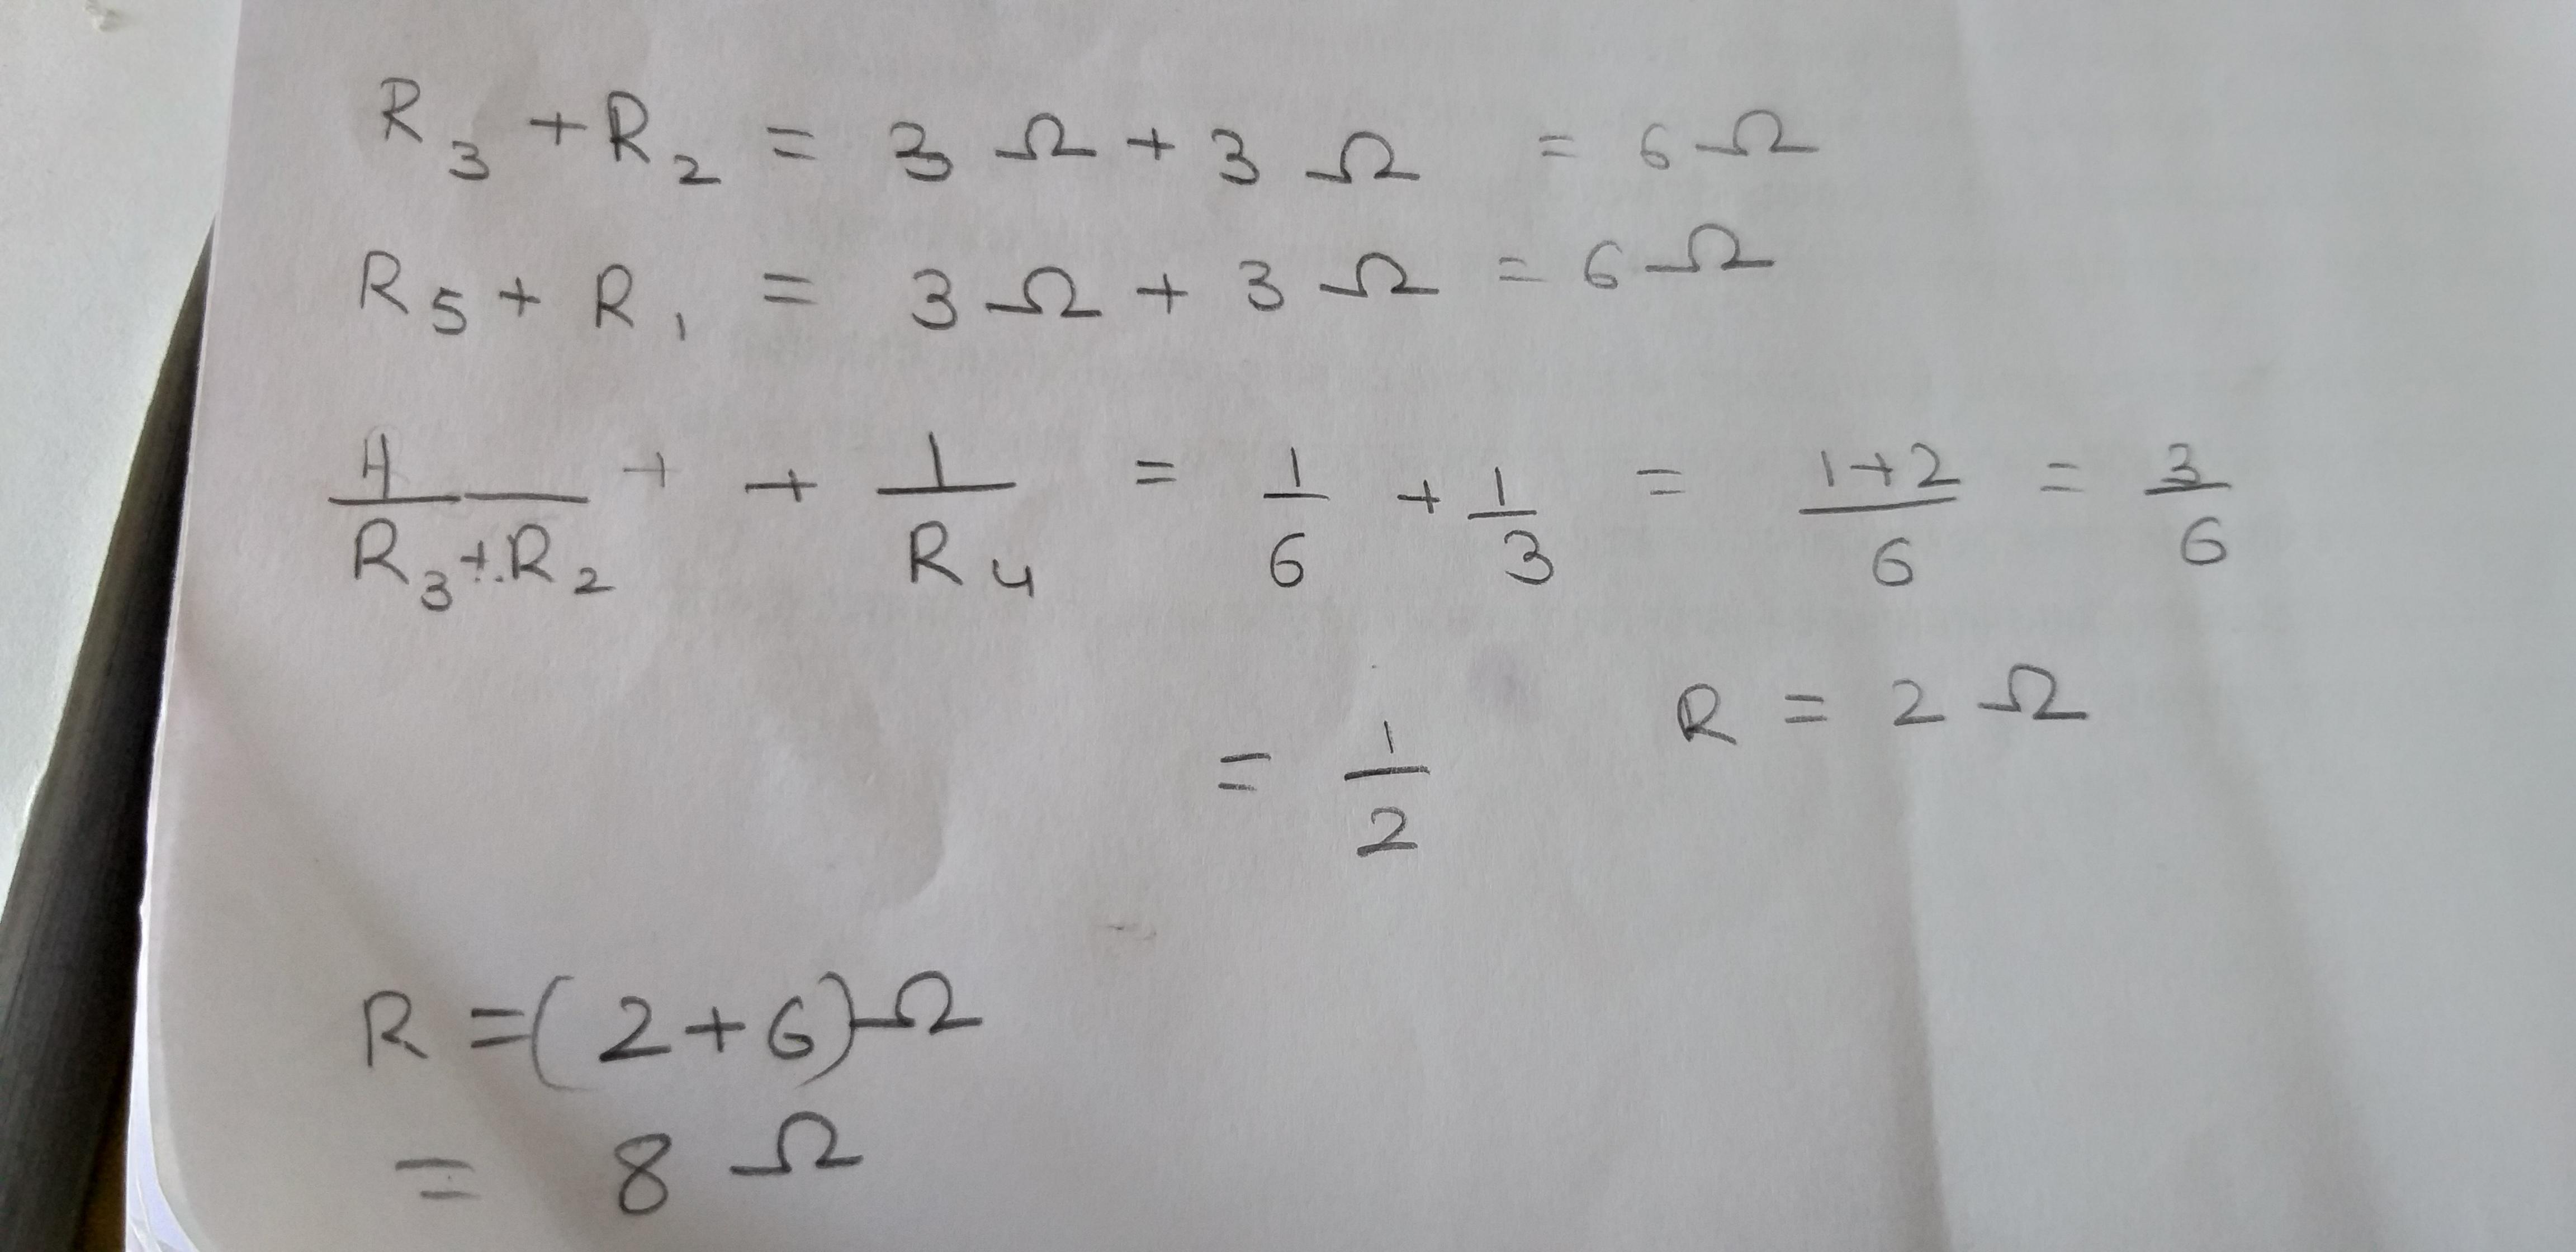 R₃ + R₂ = 3 Ω + 3 Ω = 6 Ω
R₅ + R₁ = 3 Ω + 3 Ω = 6 Ω
1/(R₃+R₂) + + 1/R₄ = 1/6 + 1/3 = (1+2)/6 = 3/6
= 1/2 R = 2 Ω
R = (2+6) Ω
= 8 Ω